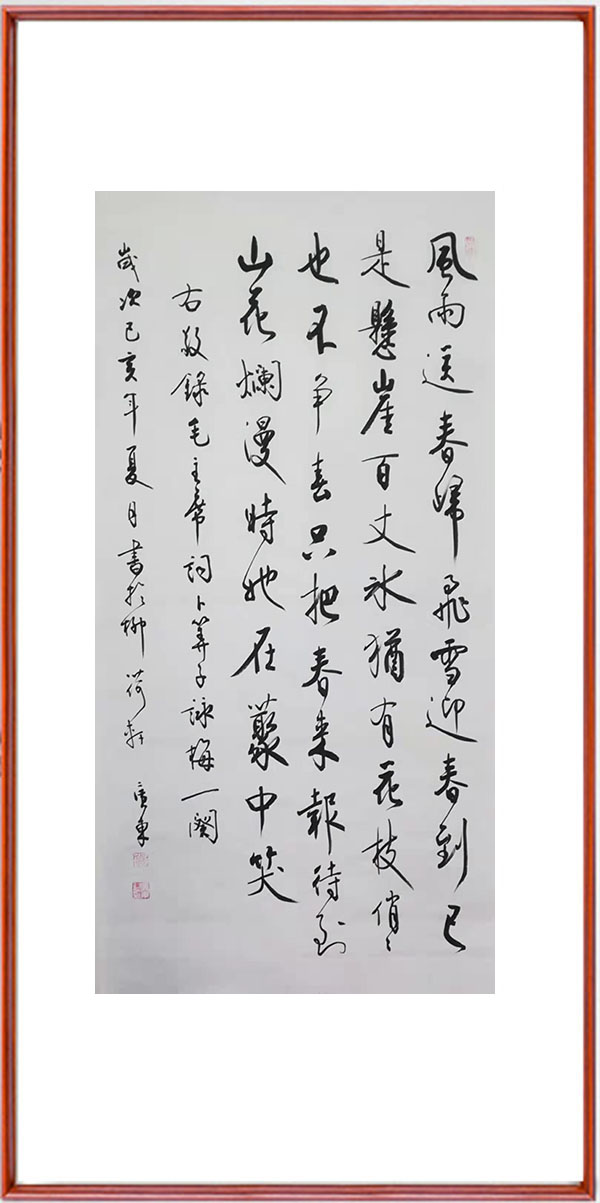 風雨送春歸飛雪迎春到已
是懸崖百丈冰猶有花枝俏〻
也不争春只把春来報待到
山花爛漫時她在藂中笑
右敬録毛主席詞卜算子詠梅一闋
歲次己亥年夏月書於柳荷軒 東